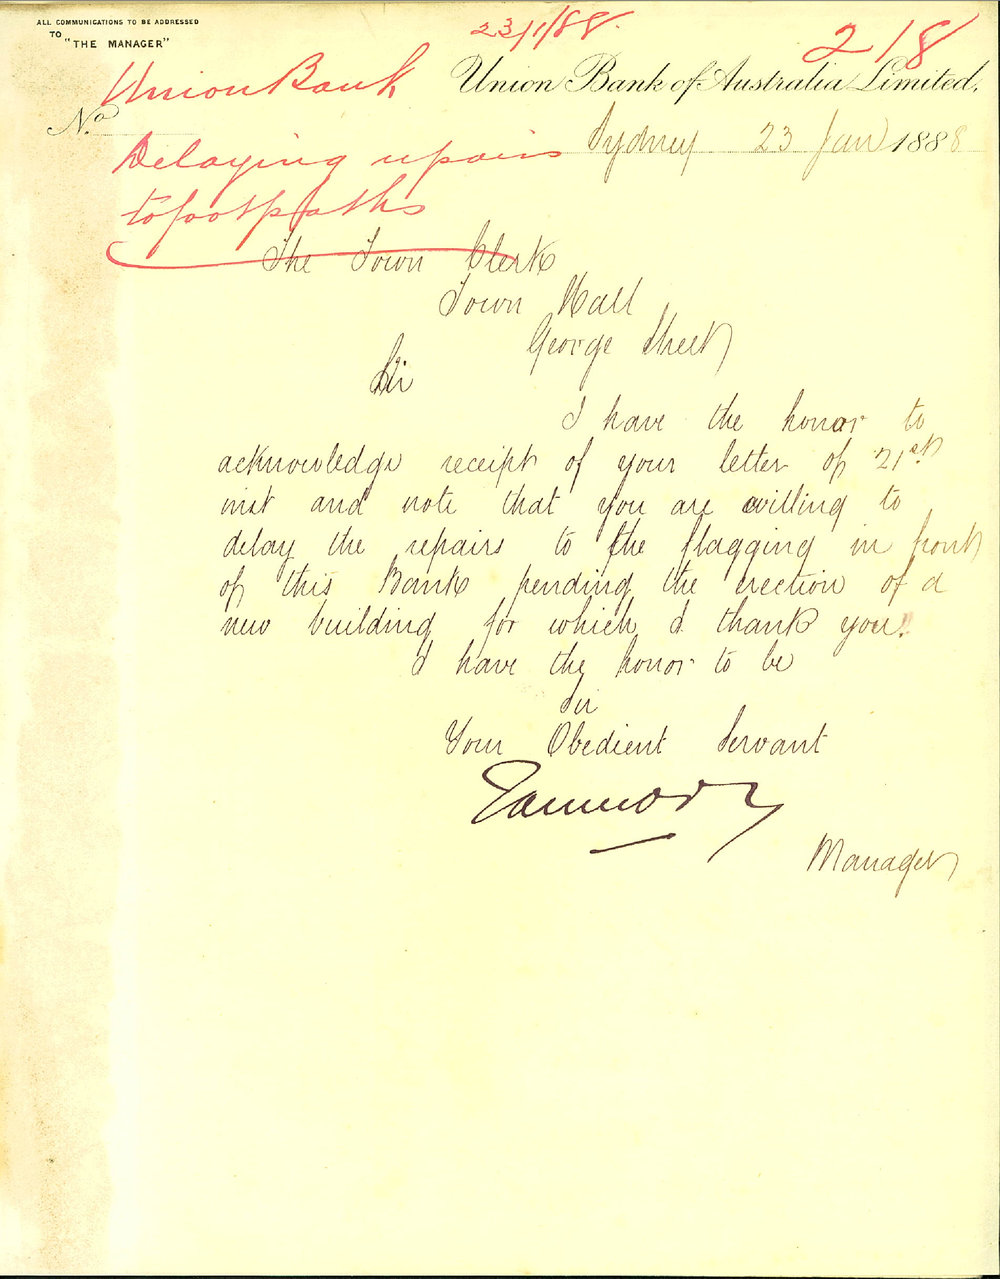 ALL COMMUNICATIONS TO BE ADDRESSED
TO "THE MANAGER"
23/1/88.
218
Union Bank
Union Bank of Australia Limited.
No
Delaying repairs
to footpaths
Sydney 23 Jan 1888
The Town Clerk
Town Hall
George Street
Sir
I have the honor to
acknowledge receipt of your letter of 21st
inst and note that you are willing to
delay the repairs to the flagging in front
of this Bank pending the erection of a
new building for which I thank you.
I have the honor to be
Sir
Your Obedient Servant
Manager